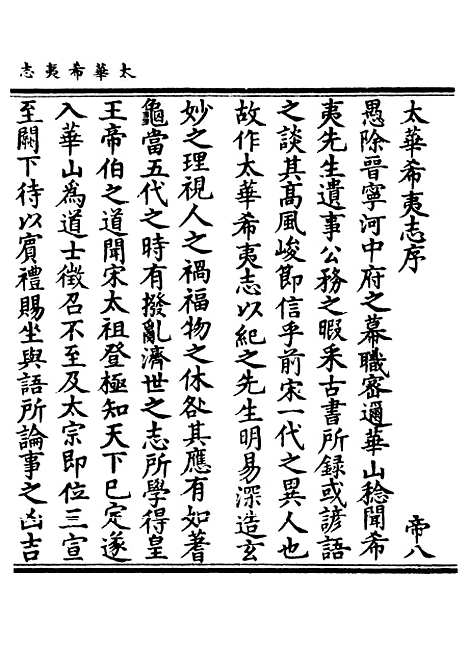 太華希夷志
太華希夷志序 帝八
愚除晉寧河中府之幕職密邇華山稔聞希
夷先生遺事公務之暇采古書所録或諺語
之談其高風峻節信乎前宋一代之異人也
故作太華希夷志以紀之先生明易深造玄
妙之理視人之禍福物之休咎其應有如蓍
龜當五代之時有撥亂濟世之志所學得皇
王帝伯之道聞宋太祖登極知天下已定遂
入華山為道士徵召不至及太宗即位三宣
至闕下待以賓禮賜坐與語所論事之凶吉